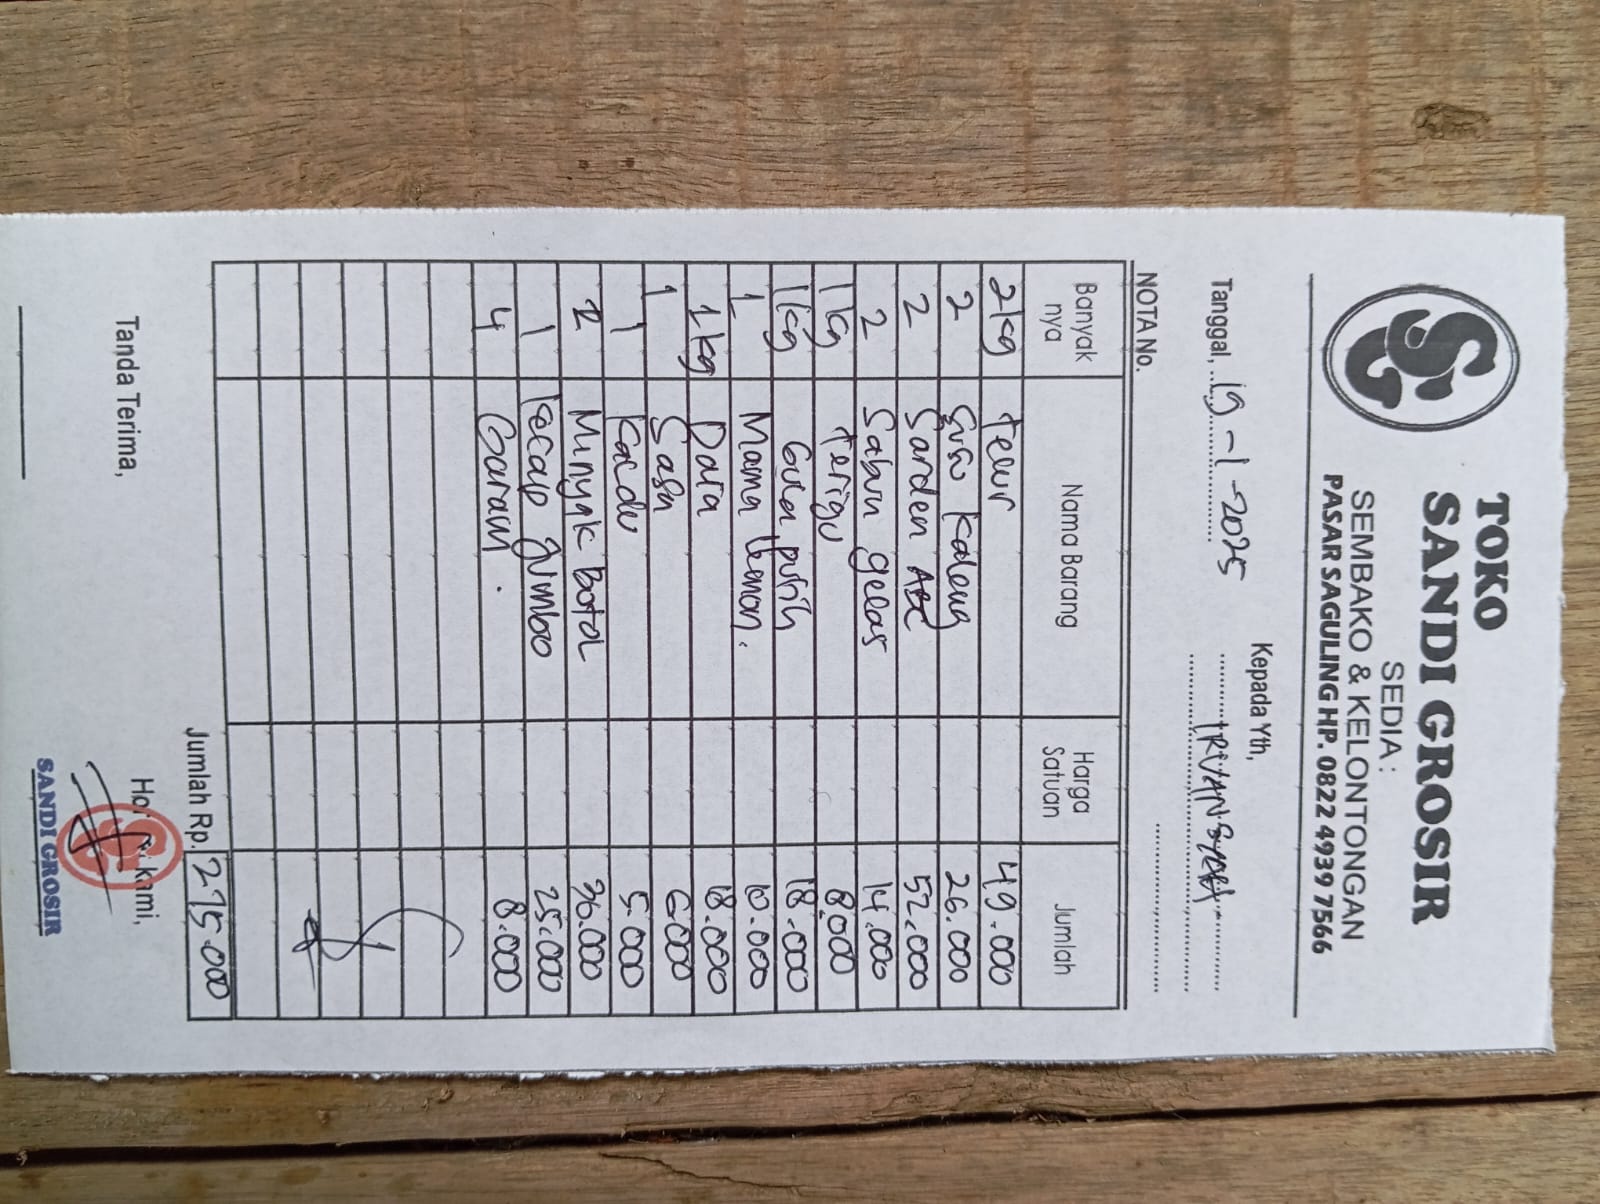 SG
TOKO
SANDI GROSIR
SEDIA :
SEMBAKO & KELONTONGAN
PASAR SAGULING HP. 0822 4939 7566
Tanggal, 19-1-2025
Kepada Yth,
NOTA No.
Banyak nya Nama Barang Harga Satuan Jumlah
2kg telur 49.000
2 Susu Kaleng 26.000
2 Sarden ABC 52.000
2 Sabun gelas 14.000
1kg terigu 8.000
1kg Gula putih 18.000
1 Mama lemon. 10.000
1kg Daia 18.000
1 Sasa 6.000
1 Kaldu 5.000
2 Minyak Botol 36.000
1 Kecap Jumbo 25.000
4 Garam. 8.000
Jumlah Rp. 275.000
Tanda Terima,
kami,
SANDI GROSIR